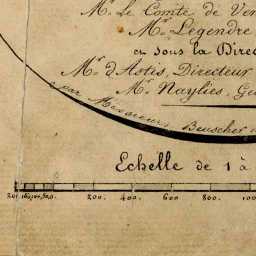 Mr. Le Comte de Ver
Mr. Legendre
en sous la Direc
Mr. d'Astis, Directeur
Mr. Naylies, Gé
par Messieurs Beuscher
Echelle de 1 à
200. 400. 600 800. 100